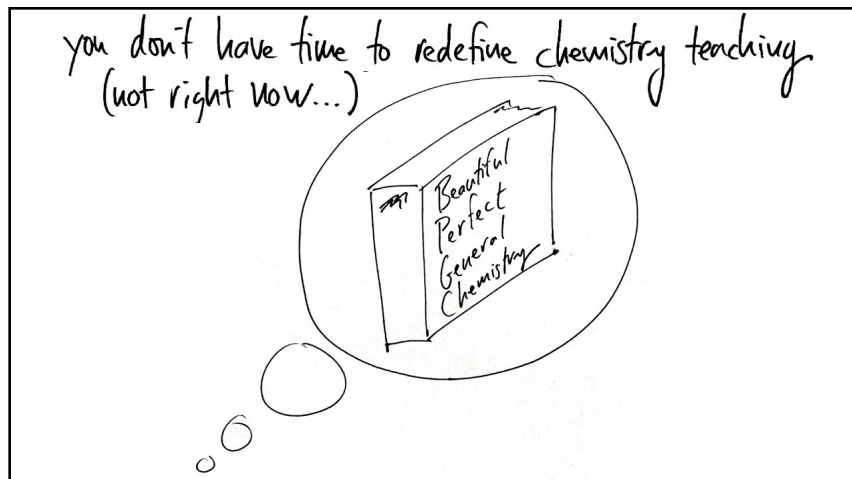 you don't have time to redefine chemistry teaching
(not right now...)
Beautiful
Perfect
General
Chemistry